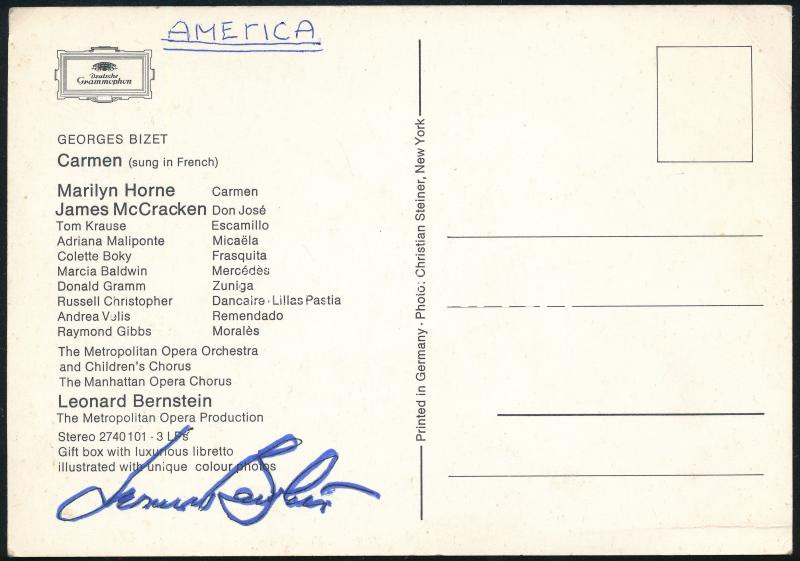 AMErICA
Deutsche
Grammophon
GEORGES BIZET
Carmen (sung in French)
Marilyn Horne Carmen
James McCracken Don José
Tom Krause Escamillo
Adriana Maliponte Micaëla
Colette Boky Frasquita
Marcia Baldwin Mercédès
Donald Gramm Zuniga
Russell Christopher Dancaire · Lillas Pastia
Andrea Velis Remendado
Raymond Gibbs Moralès
The Metropolitan Opera Orchestra
and Children's Chorus
The Manhattan Opera Chorus
Leonard Bernstein
The Metropolitan Opera Production
Stereo 2740101 · 3 LPs
Gift box with luxurious libretto
illustrated with unique colour photos
Leonard Bernstein
Printed in Germany · Photo: Christian Steiner, New York